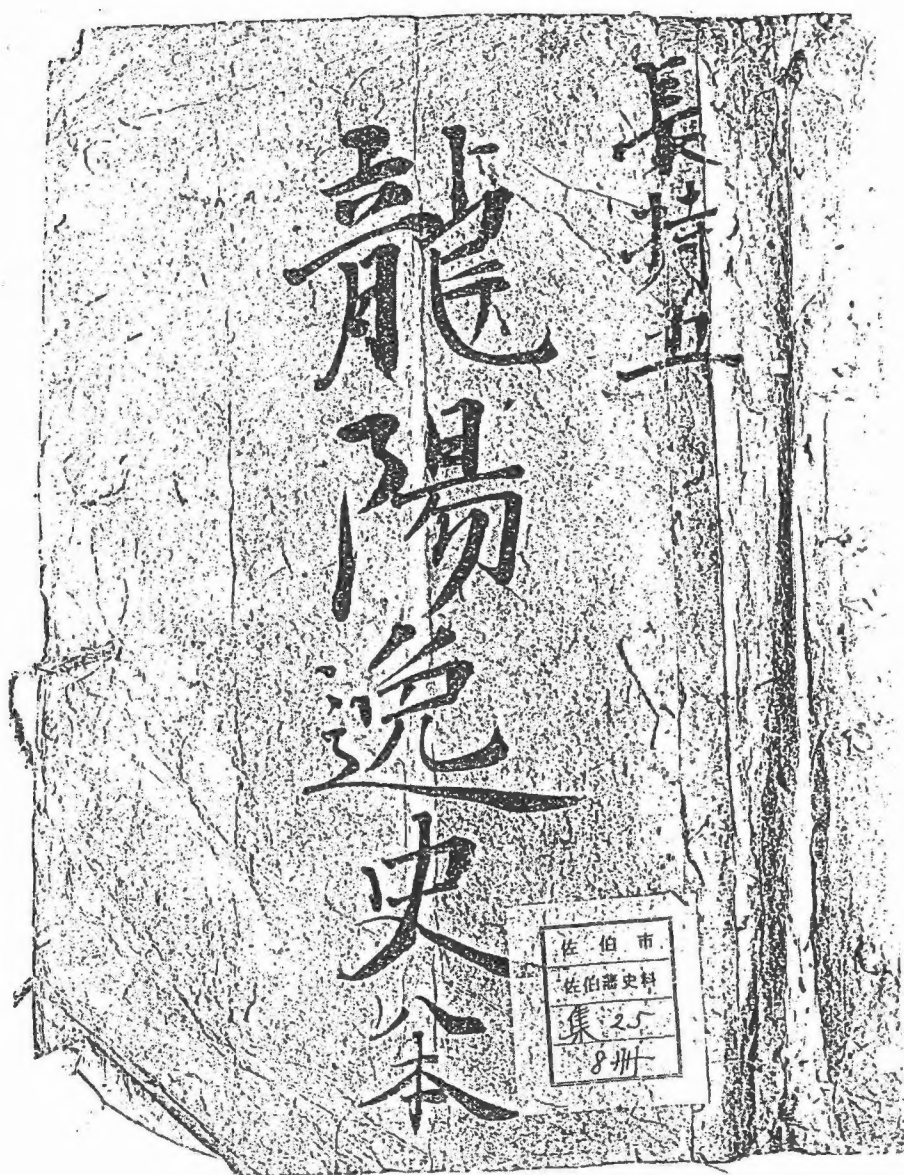 長持五
龍陽逸史八本
佐伯市
佐伯藩史料
集 25
8冊